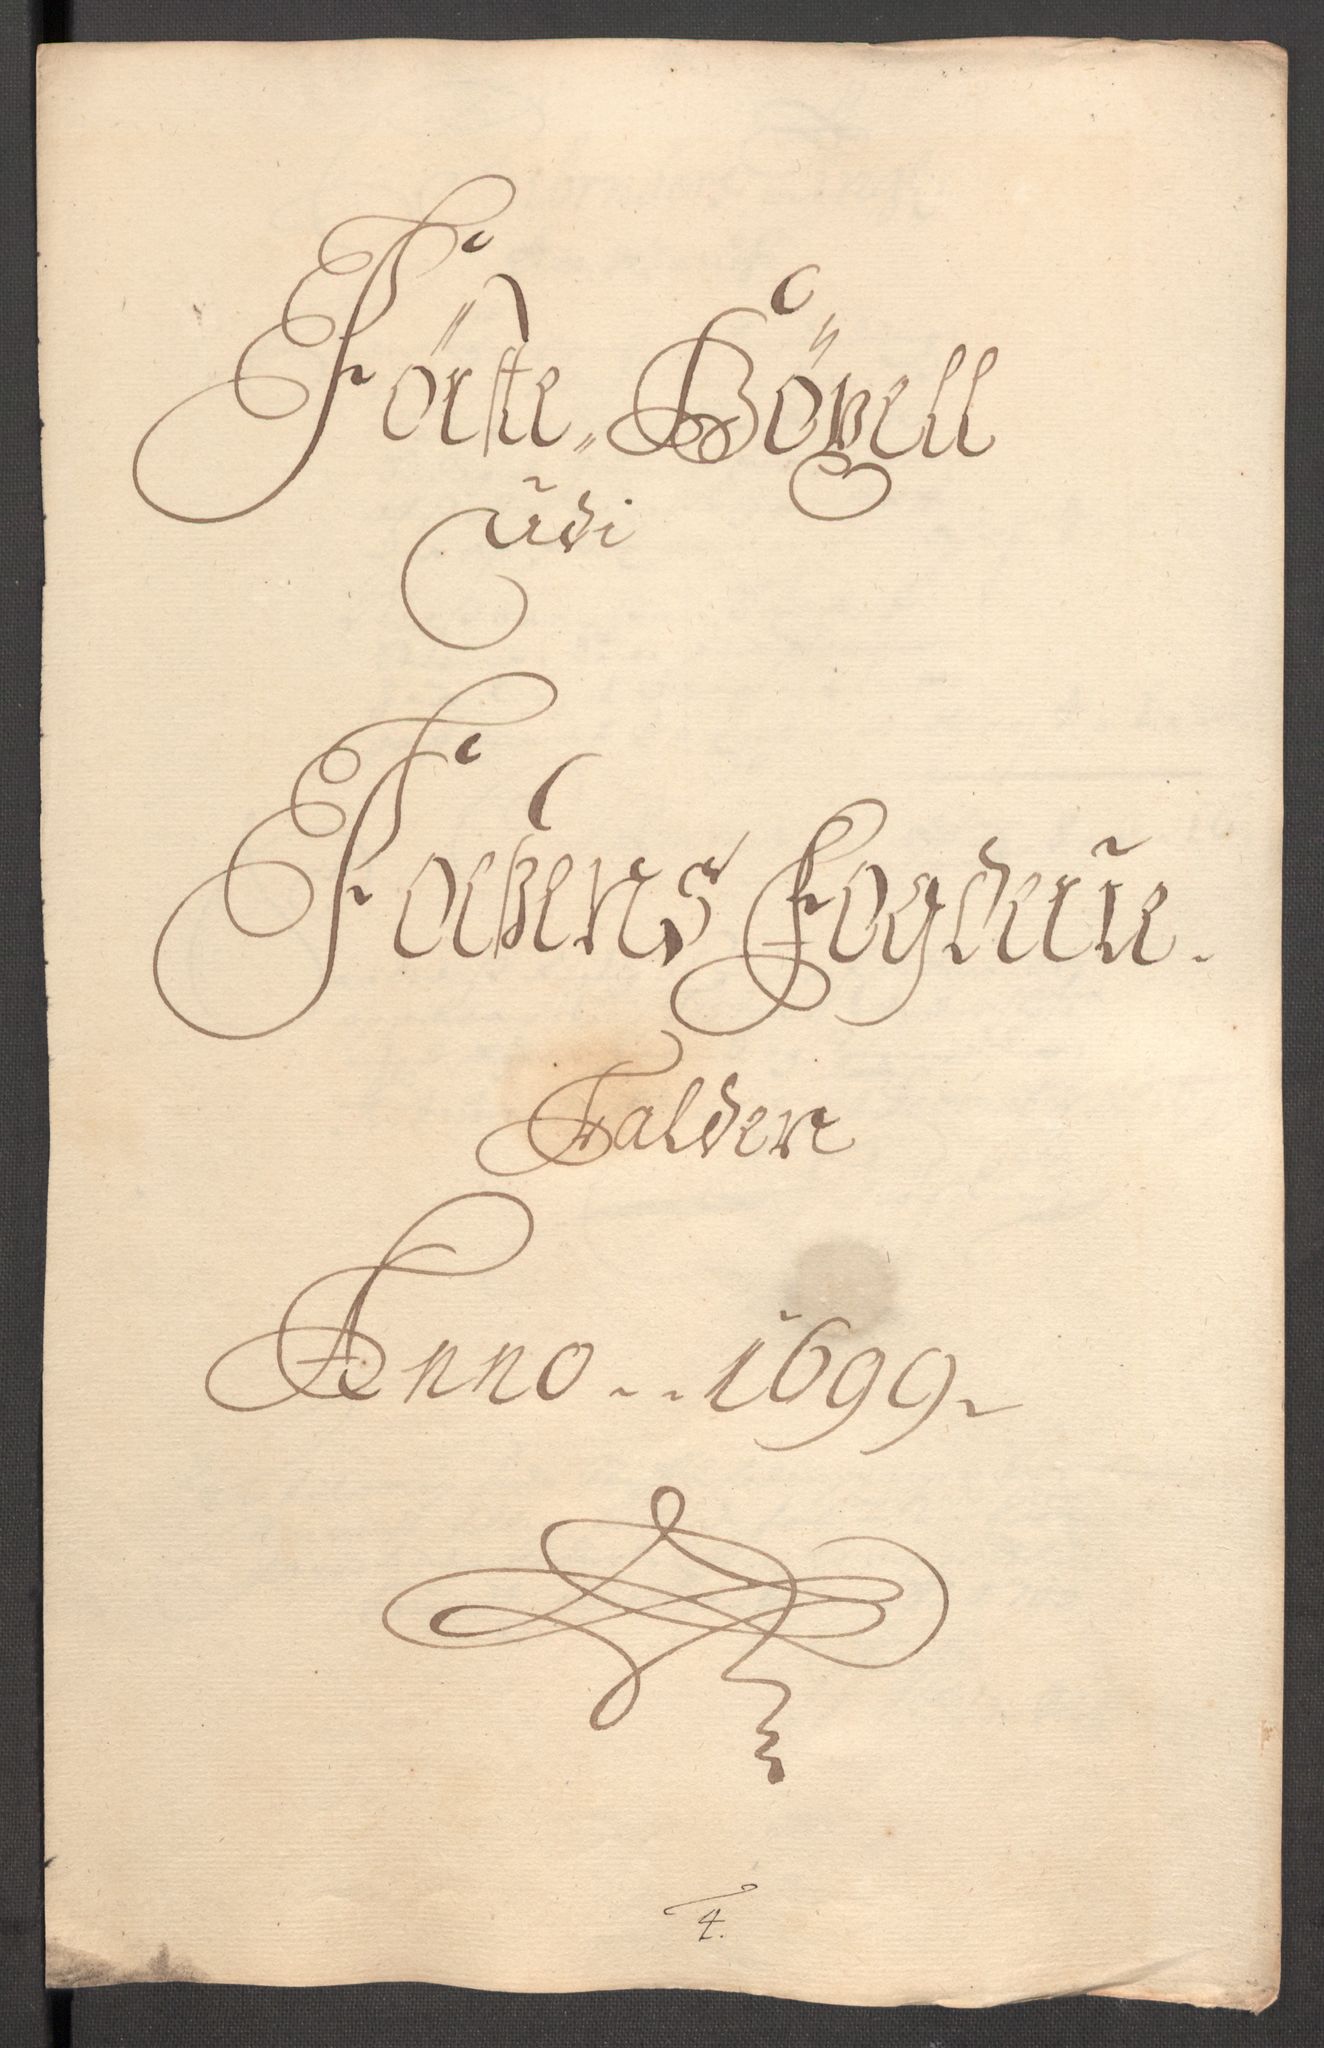 Förste Bögell
udi
Foesens Fogderie.
Falden
Anno 1699
4.